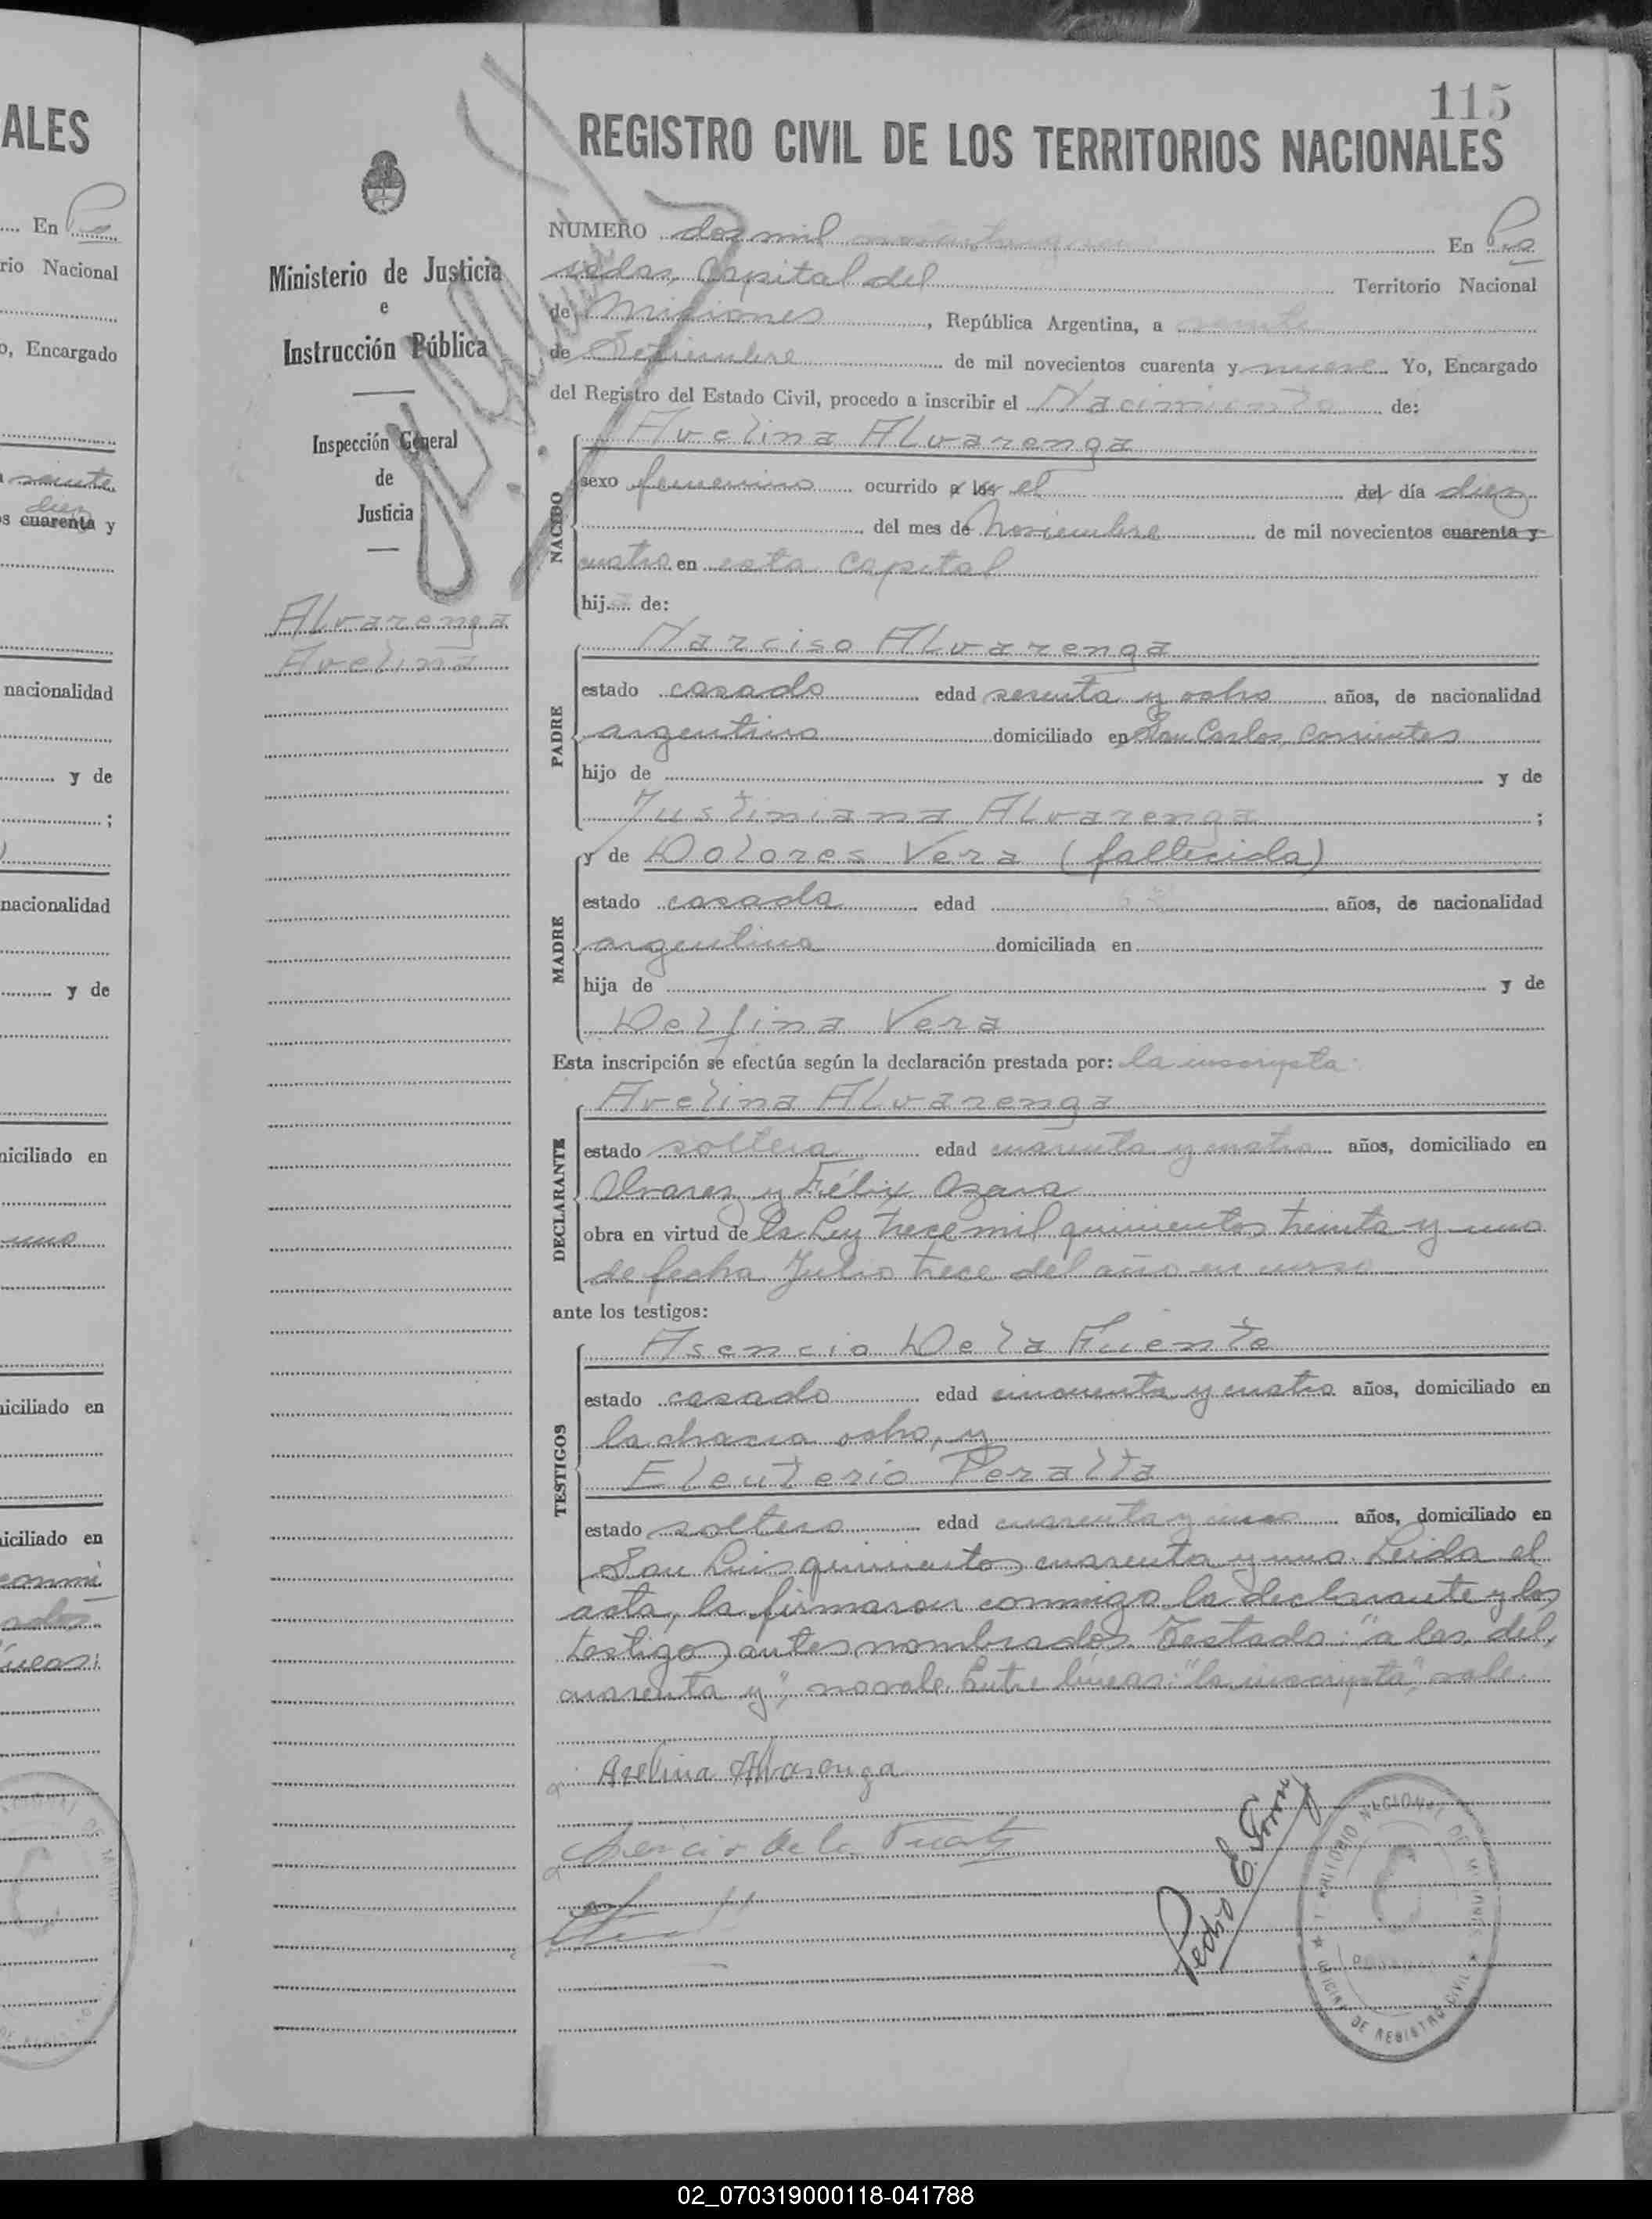 115
REGISTRO CIVIL DE LOS TERRITORIOS NACIONALES
NUMERO dos mil En Po
sadas, Capital del Territorio Nacional
de Misiones, República Argentina, a veinte
de Setiembre de mil novecientos cuarenta y nueve Yo, Encargado
del Registro del Estado Civil, procedo a inscribir el Nacimiento de:
Avelina Alvarenga
NACIDO
sexo femenino ocurrido a las el del día diez
del mes de Noviembre de mil novecientos cuarenta y
cuatro en esta Capital
hija de:
Narciso Alvarenga
PADRE
estado casado edad sesenta y ocho años, de nacionalidad
argentino domiciliado en San Carlos, Corrientes
hijo de y de
Justiniana Alvarenga ;
y de Dolores Vera (fallecida)
MADRE
estado casada edad años, de nacionalidad
argentina domiciliada en
hija de y de
Delfina Vera
Esta inscripción se efectúa según la declaración prestada por: la inscripta
Avelina Alvarenga
DECLARANTE
estado soltera edad cuarenta y cuatro años, domiciliado en
Alvarez y Félix Azara
obra en virtud de la Ley trece mil quinientos treinta y uno
de fecha Julio trece del año en curso
ante los testigos:
Asencio De la Fuente
TESTIGOS
estado casado edad cincuenta y cuatro años, domiciliado en
la chacra ocho, y
Eleuterio Peralta
estado soltero edad cuarenta y años, domiciliado en
San Luis quinientos cuarenta y uno. Leida el
acta, la firmaron conmigo la declarante y los
testigos antes nombrados. Testado: "a las del,
cuarenta y", no vale. Entre líneas: "la inscripta", vale.
Avelina Alvarenga
Asencio de la Fuente
Pedro E.
Ministerio de Justicia
e
Instrucción Pública
Inspección General
de
Justicia
Alvarenga
Avelina
TERRITORIO NACIONAL DE MISIONES
OFICINA DE REGISTRO CIVIL
POSADAS
ALES
En Po
rio Nacional
o, Encargado
veinte
diez
s cuarenta y
nacionalidad
y de
;
nacionalidad
y de
niciliado en
uno
niciliado en
niciliado en
conmi
ados
íneas:
02_070319000118-041788